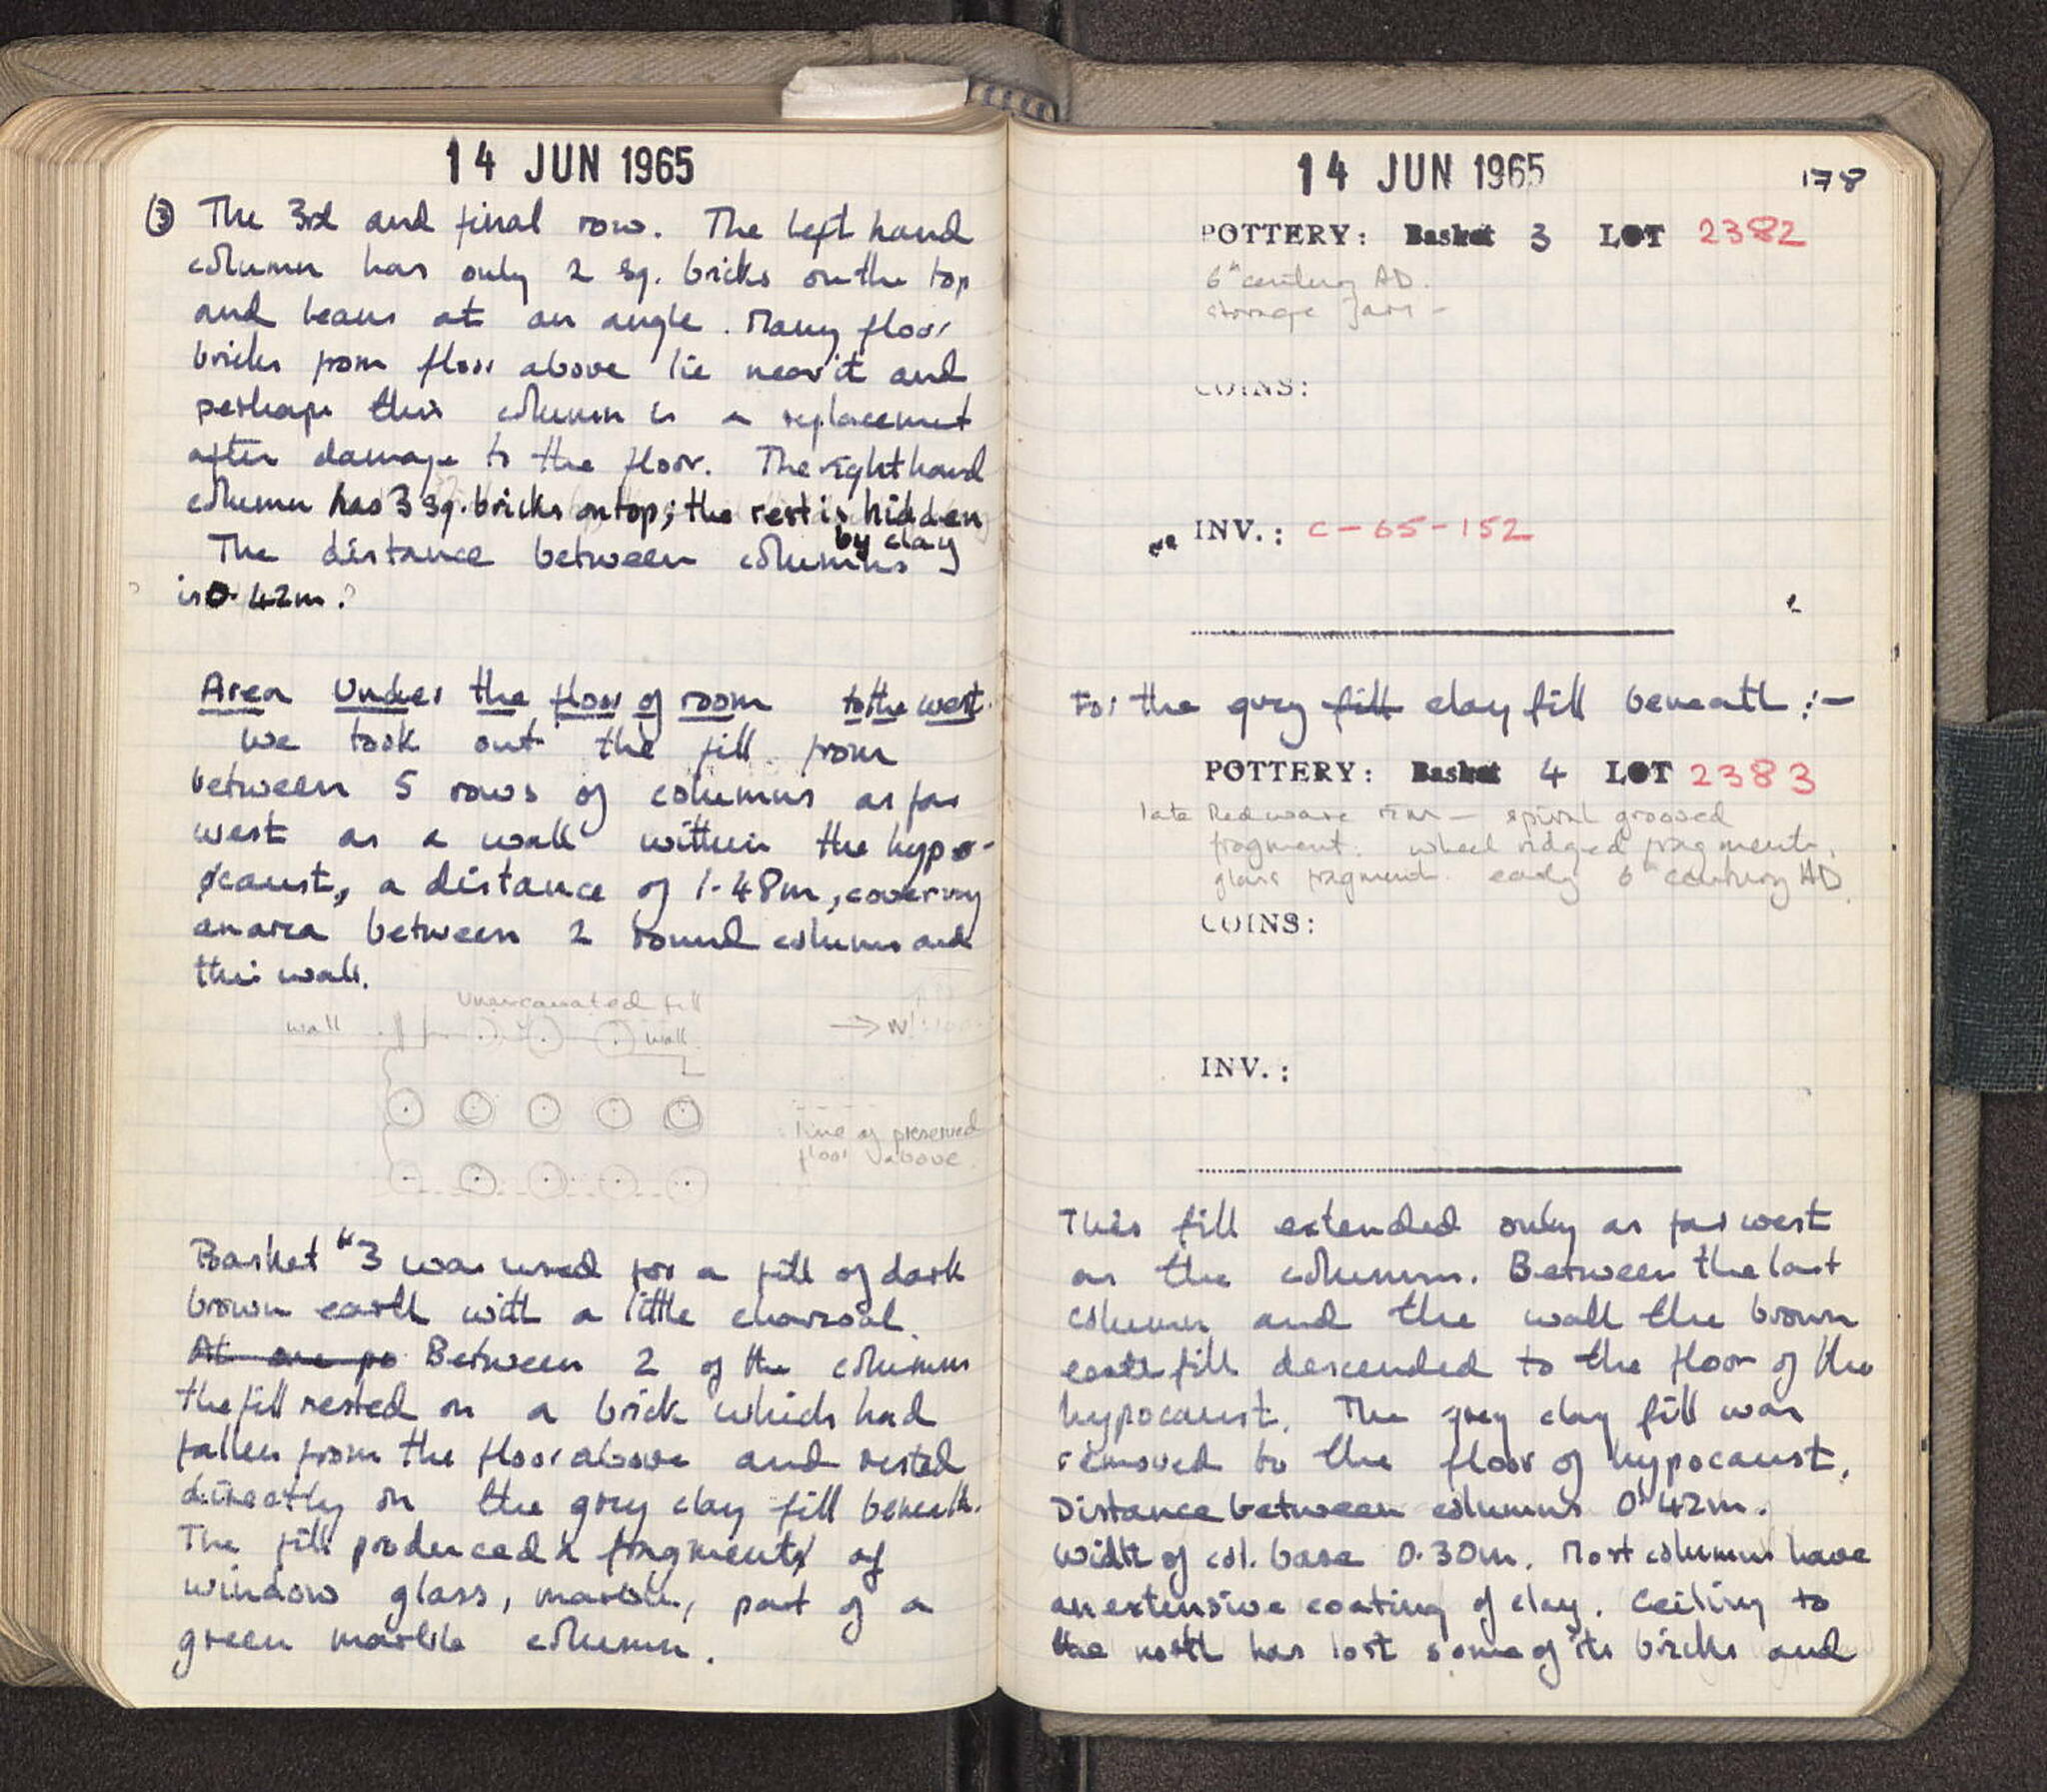 14 JUN 1965
③ The 3rd and final row. The left hand
column has only 2 sq. bricks on the top
and leans at an angle. Many floor
bricks from floor above lie near it and
perhaps this column is a replacement
after damage to the floor. The right hand
column has 3 sq. bricks on top; the rest is hidden
by clay
The distance between columns
is 0.42m.
Area Under the floor of room to the west.
We took out the fill from
between 5 rows of columns as far
west as a wall within the hypo-
caust, a distance of 1.48m, covering
an area between 2 round columns and
this wall.
Unexcavated fill
wall
wall
→ N
line of preserved
floor above
Basket #3 was used for a fill of dark
brown earth with a little charcoal.
At one po Between 2 of the columns
the fill rested on a brick which had
fallen from the floor above and rested
directly on the grey clay fill beneath.
The fill produced fragments of
window glass, marble, part of a
green marble column.
14 JUN 1965
178
POTTERY: Basket 3 LOT 2382
6th century AD.
storage jars -
COINS:
INV.: C-65-152
For the grey fill clay fill beneath :-
POTTERY: Basket 4 LOT 2383
late Red ware rim - spiral grooved
fragment. wheel ridged fragments,
glass fragment. early 6th century AD.
COINS:
INV.:
This fill extended only as far west
as the columns. Between the last
column and the wall the brown
earth fill descended to the floor of the
hypocaust. The grey clay fill was
removed to the floor of hypocaust.
Distance between columns 0.42m.
Width of col. base 0.30m. Most columns have
an extensive coating of clay. Ceiling to
the north has lost some of its bricks and